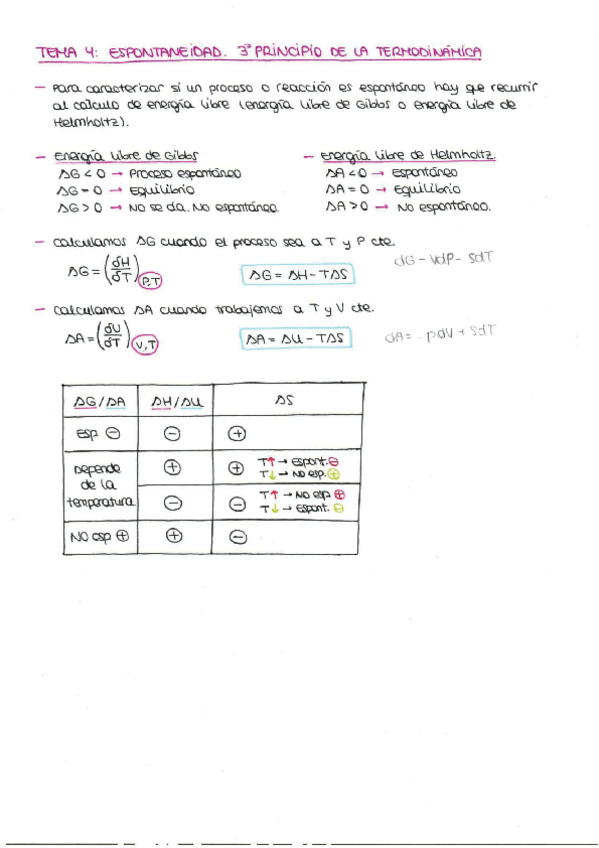 TEMA 4: ESPONTANEIDAD. 3º PRINCIPIO DE LA TERMODINÁMICA
— Para caracterizar si un proceso o reacción es espontáneo hay que recurrir
al cálculo de energía libre (energía libre de Gibbs o energía libre de
Helmholtz).
— Energía libre de Gibbs
ΔG < 0 → Proceso espontáneo
ΔG = 0 → Equilibrio
ΔG > 0 → No se da. No espontáneo.
— Energía libre de Helmholtz.
ΔA < 0 → Espontáneo
ΔA = 0 → Equilibrio
ΔA > 0 → No espontáneo.
— Calculamos ΔG cuando el proceso sea a T y P cte.
ΔG = (δH/δT) P,T ΔG = ΔH - TΔS dG - VdP - SdT
— Calculamos ΔA cuando trabajemos a T y V cte.
ΔA = (δU/δT) V,T ΔA = ΔU - TΔS dA = - pdV + SdT
ΔG/ΔA ΔH/ΔU ΔS
Esp ⊖ ⊖ ⊕
Depende
de la
temperatura
⊕ ⊕ T↑ → Espont. ⊖
T↓ → No esp. ⊕
⊖ ⊖ T↑ → No esp ⊕
T↓ → Espont. ⊖
No esp ⊕ ⊕ ⊖